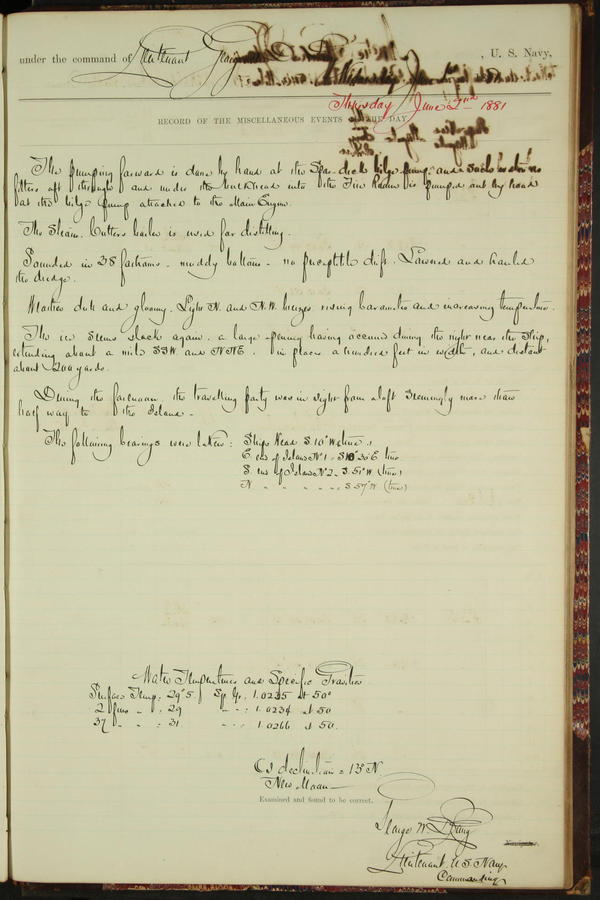 under the command of Lieutenant George W. De Long, U. S. Navy,
Thursday June 2nd 1881
RECORD OF THE MISCELLANEOUS EVENTS OF THE DAY
The pumping forward is done by hand at the Spar deck bilge pump and
filters aft through and under the bulkhead into the Fire Room is pumped out by hand
at the bilge pump attached to the Main Engine.
The Steam Cutters boiler is used for distilling.
Sounded in 38 fathoms - muddy bottom - no perceptible drift. Lowered and hauled
the dredge.
Weather dull and gloomy. Light N. and N.W. breezes, rising barometer and increasing temperature.
The ice seems slack again, a large opening having occurred during the night near the Ship,
extending about a mile SSW. and NNE. in places a hundred feet in width, and distant
about 200 yards.
During the forenoon the travelling party was in sight from aloft seemingly more than
half way to the Island -
The following bearings were taken: Ships Head S. 10° W (true)
E. end of Island No 1 - S. E true
S. end of Island No 2 - S. 51° W. (true)
N " " " " " S. 57° W (true)
Water Temperatures and Specific Gravities
Surface Temp: 29°.5 Sp. Gr. 1.0235 at 50°
2 fms " : 29 " " : 1.0234 at 50
37 " " : 31 " " : 1.0266 at 50.
declination = 13° N.
New Moon
Examined and found to be correct.
George W. De Long
Navigator.
Lieutenant U.S. Navy
Commanding